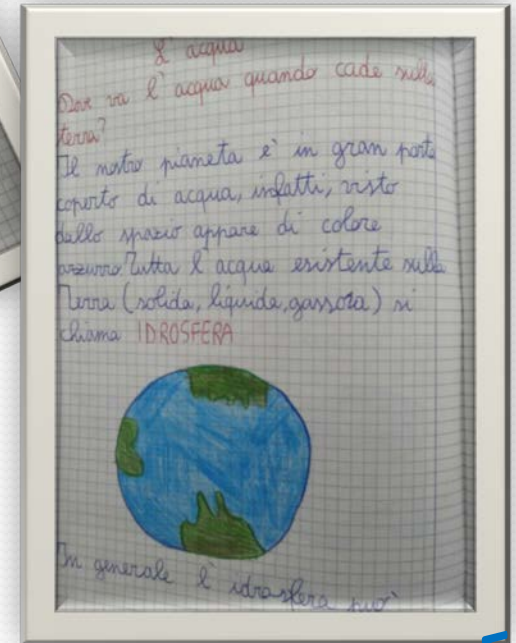 L' acqua
Dove va l' acqua quando cade sulla
terra?
Il nostro pianeta è in gran parte
coperto di acqua, infatti, visto
dallo spazio appare di colore
azzurro Tutta l' acqua esistente sulla
Terra (solida, liquida, gassosa) si
chiama IDROSFERA
In generale l' idrosfera può